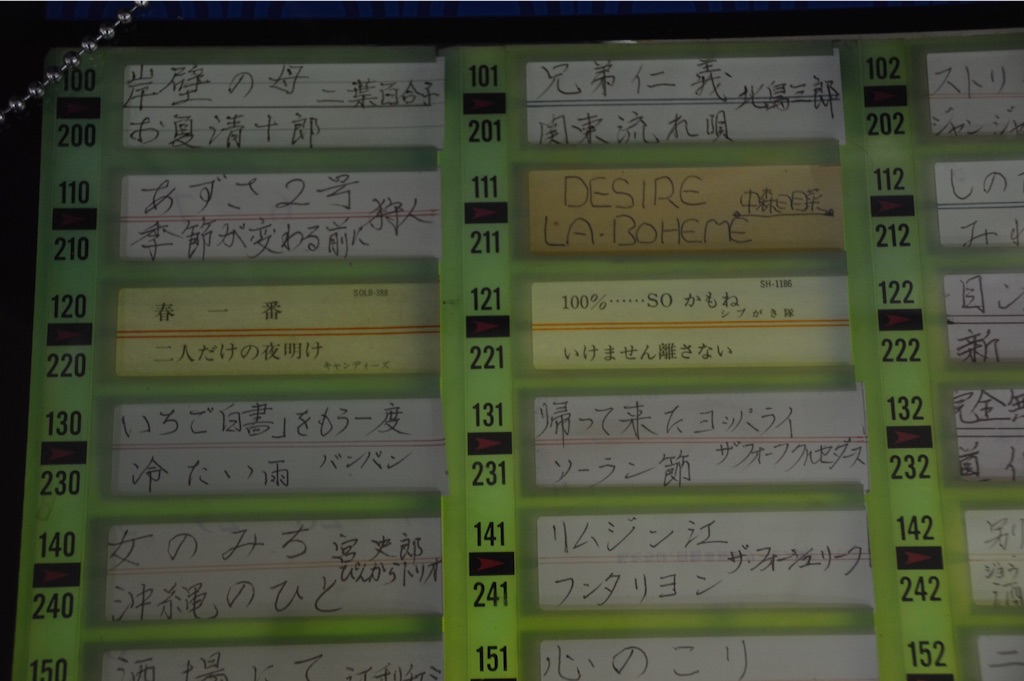 100
岸壁の母
二葉百合子
200
お夏清十郎
101
兄弟仁義
北島三郎
201
関東流れ唄
102
ストリ
202
ジャンジャ
110
あずさ2号
狩人
210
季節が変わる前に
111
DESIRE
中森明菜
211
LA・BOHEME
112
しの
212
みれ
120
SOLB-388
春一番
220
二人だけの夜明け
キャンディーズ
121
SH-1186
100%……SOかもね
シブがき隊
221
いけません離さない
122
222
新
130
いちご白書」をもう一度
230
冷たい雨
バンバン
131
帰って来たヨッパライ
231
ソーラン節
ザフォーククルセダース
132
完全無
232
道
140
女のみち
宮史郎
ぴんからトリオ
240
沖縄のひと
141
リムジン江
ザ・フォーシュリーク
241
フンタリヨン
142
別
242
ジョウ
酒
150
酒場にて
江利チエミ
151
心のこり
152